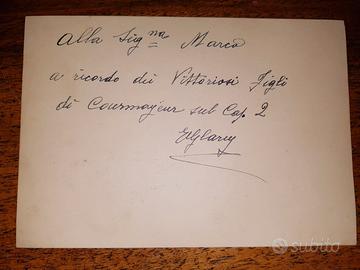 Alla Sig.na Marco
a ricordo dei Vittoriosi Figli
di Courmayeur sul Cap. 2
subito